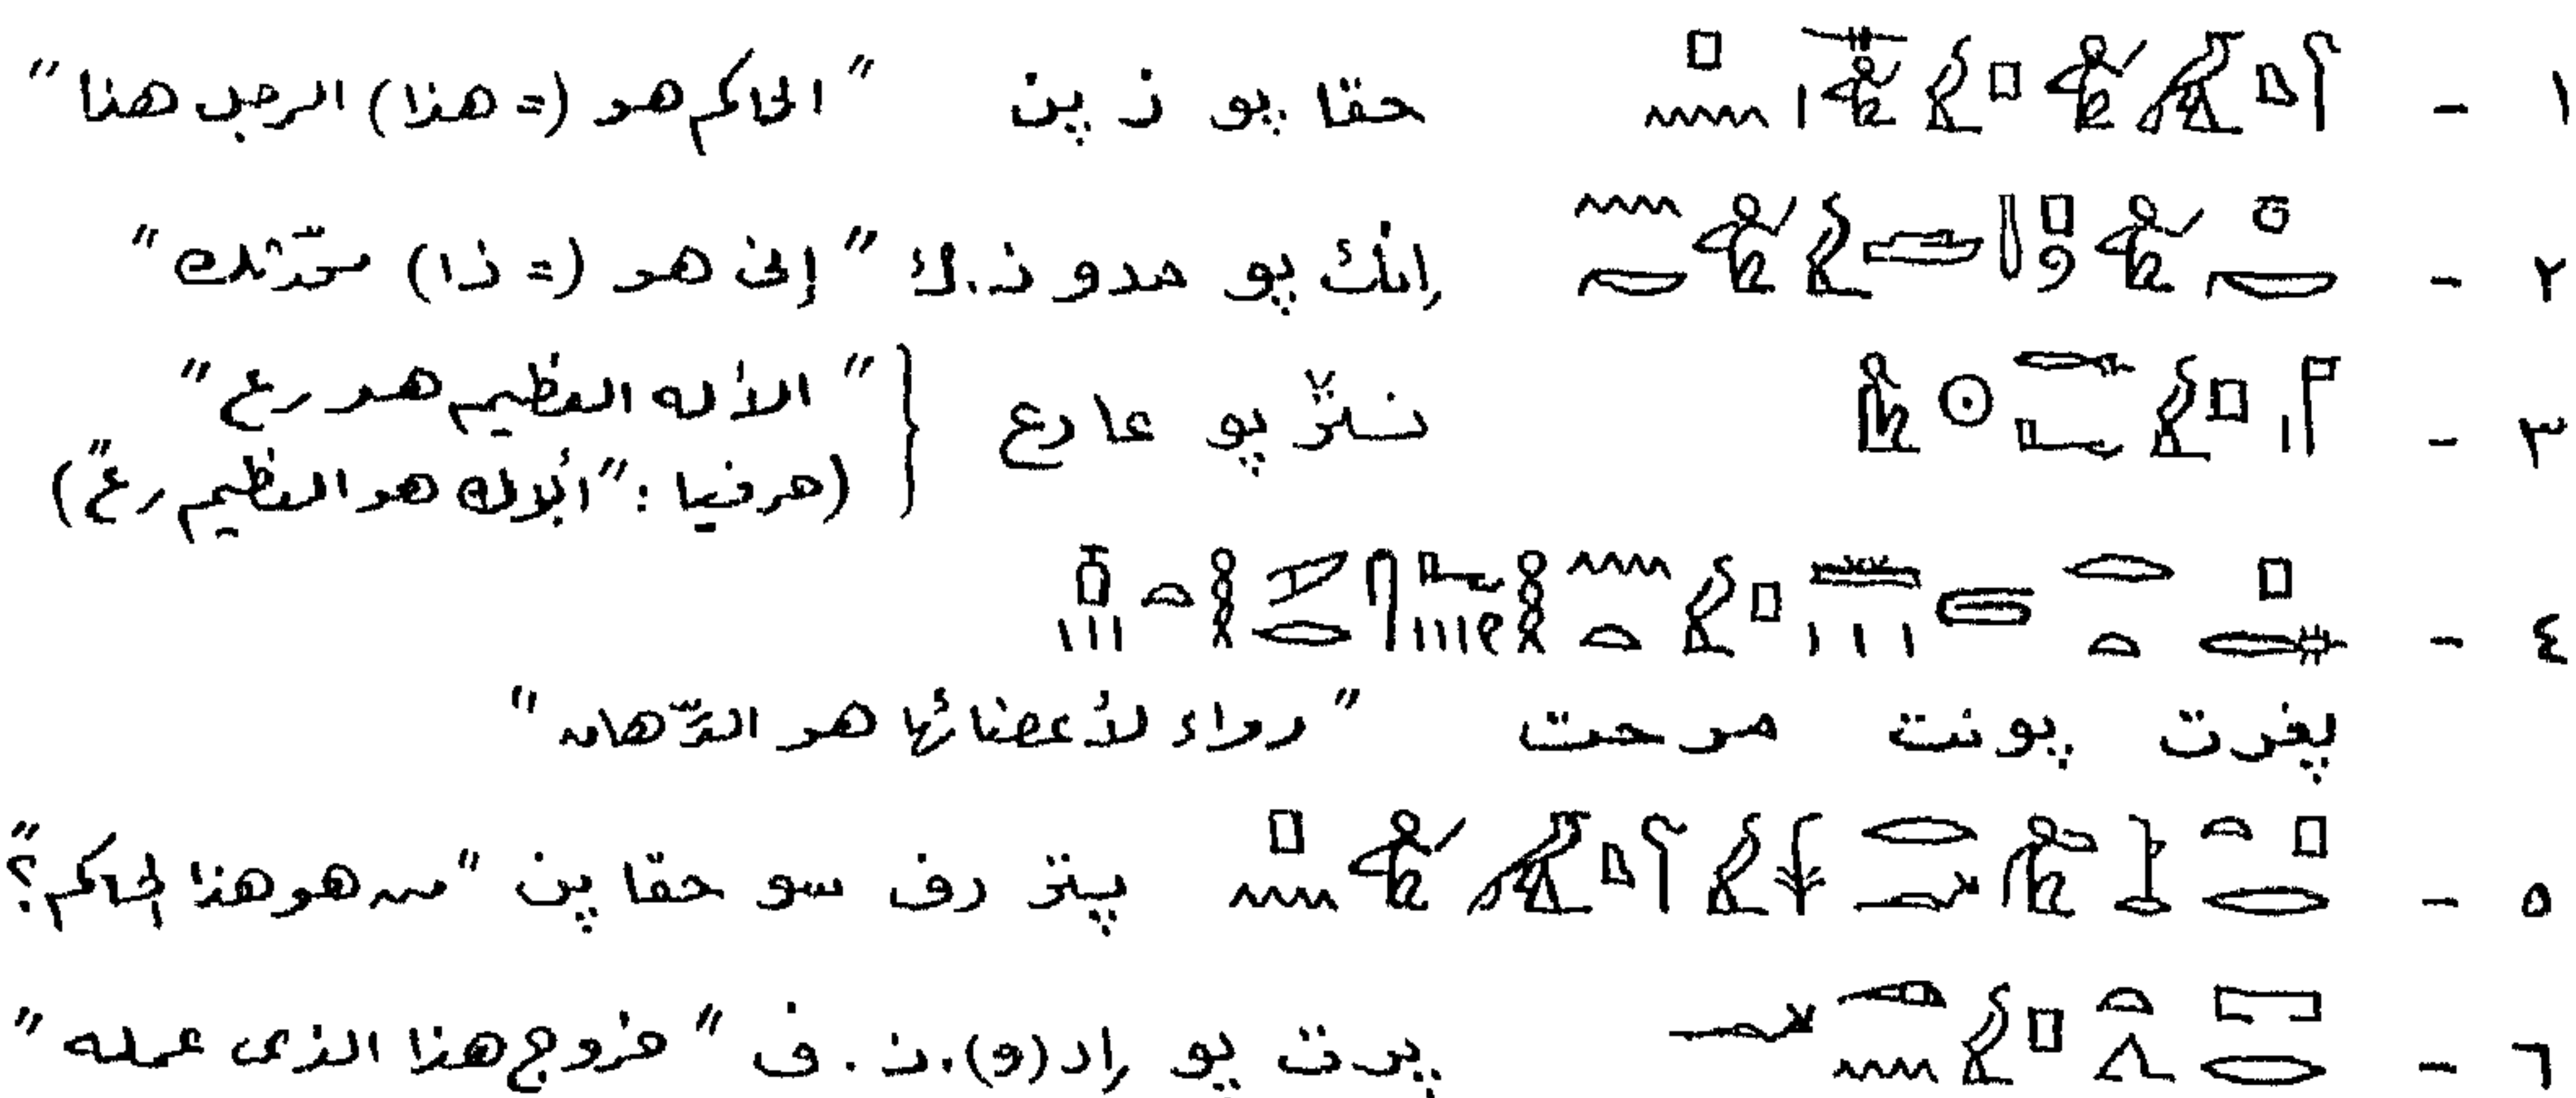 ١ - حقا پو ز پن "الحاكم هو (= هذا) الرجل هنا"
٢ - إنك پو مدو ن.ك "إنى هو (= ذا) محدّثك"
٣ - نتر پو عا رع "الأله العظيم هو رع"
(حرفيا: "الأله هو العظيم رع")
٤ -
پخرت پو نت مرحت "دواء لأعضائها هو الدّهان"
٥ - پتر رف سو حقا پن "من هو هذا الحاكم؟"
٦ - پرت پو إر(و).ن.ف "خروج هذا الذى عمله"